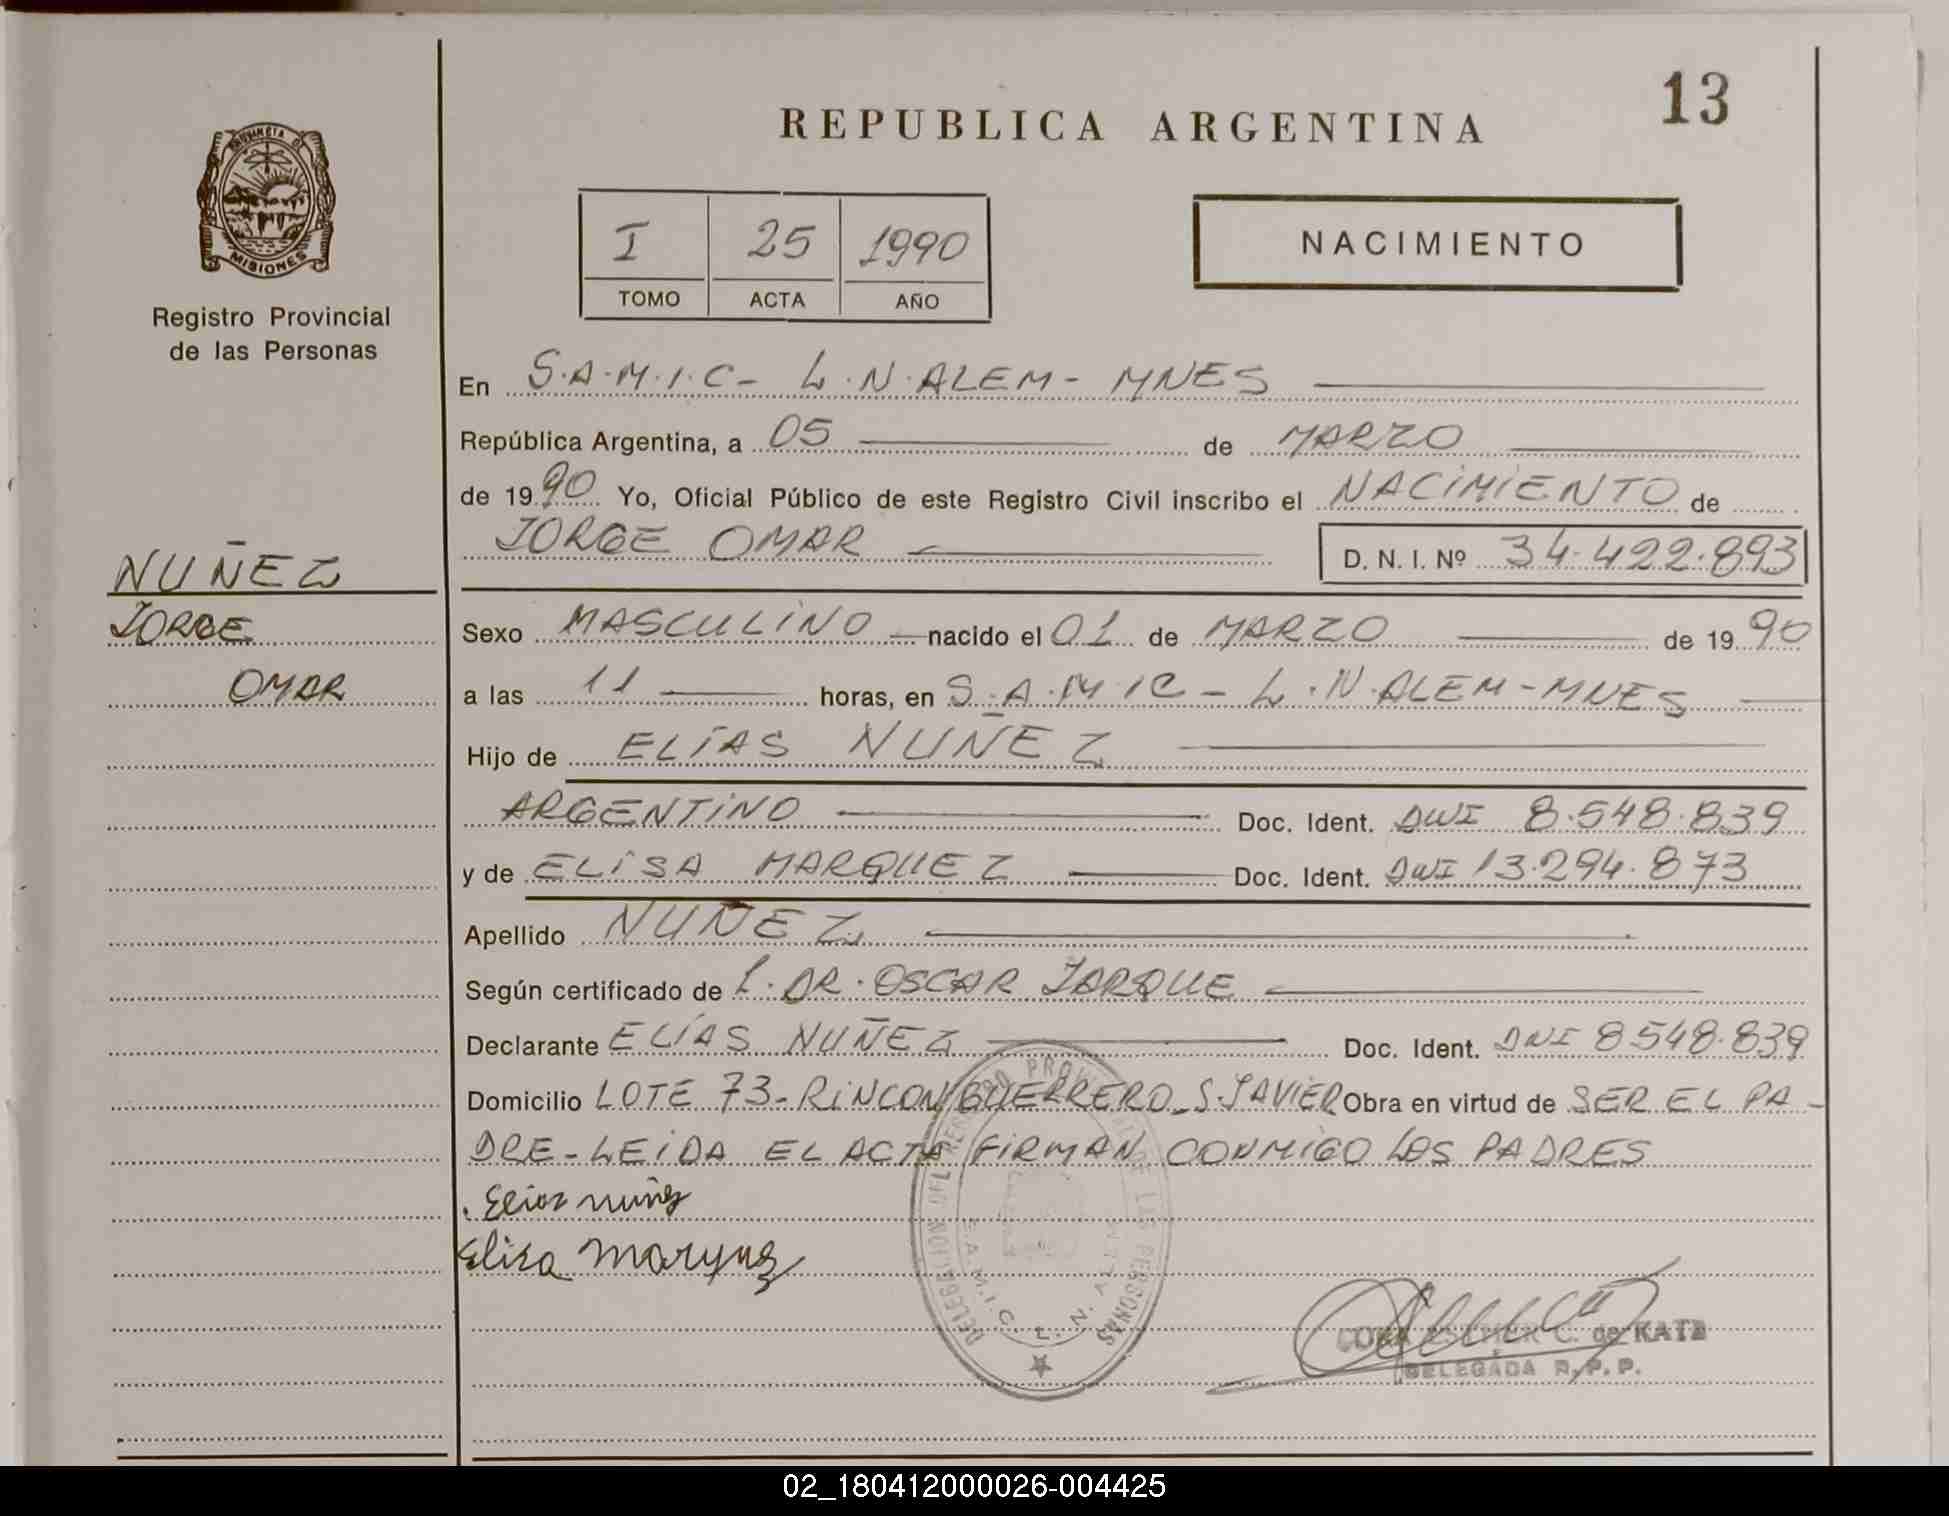 13
REPUBLICA ARGENTINA
PROVINCIA DE
MISIONES
Registro Provincial
de las Personas
I 25 1990
TOMO ACTA AÑO
NACIMIENTO
En S.A.M.I.C- L.N.ALEM- MNES
República Argentina, a 05 de MARZO
de 1990 Yo, Oficial Público de este Registro Civil inscribo el NACIMIENTO de
JORGE OMAR D. N. I. Nº 34.422.893
NUÑEZ
JORGE
OMAR
Sexo MASCULINO nacido el 01 de MARZO de 1990
a las 11 horas, en S.A.M.IC - L.N.ALEM-MNES
Hijo de ELÍAS NUÑEZ
ARGENTINO Doc. Ident. DNI 8.548.839
y de ELISA MARQUEZ Doc. Ident. DNI 13.294.873
Apellido NUÑEZ
Según certificado de L. DR. OSCAR JARQUE
Declarante ELÍAS NUÑEZ Doc. Ident. DNI 8548.839
Domicilio LOTE 73-RINCON GUERRERO-S.JAVIER Obra en virtud de SER EL PA-
DRE-LEIDA EL ACTA FIRMAN CONMIGO LOS PADRES
Elias nuñez
Elisa Marquez
DELEGACION DEL REGISTRO PROVINCIAL DE LAS PERSONAS
S.A.M.I.C. L. N. ALEM
ESTHER C. de KATZ
DELEGADA R.P.P.
02_180412000026-004425